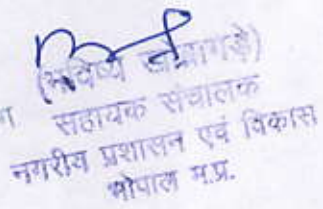 (भविष्य
सहायक संचालक
नगरीय प्रशासन एवं विकास
भोपाल म.प्र.